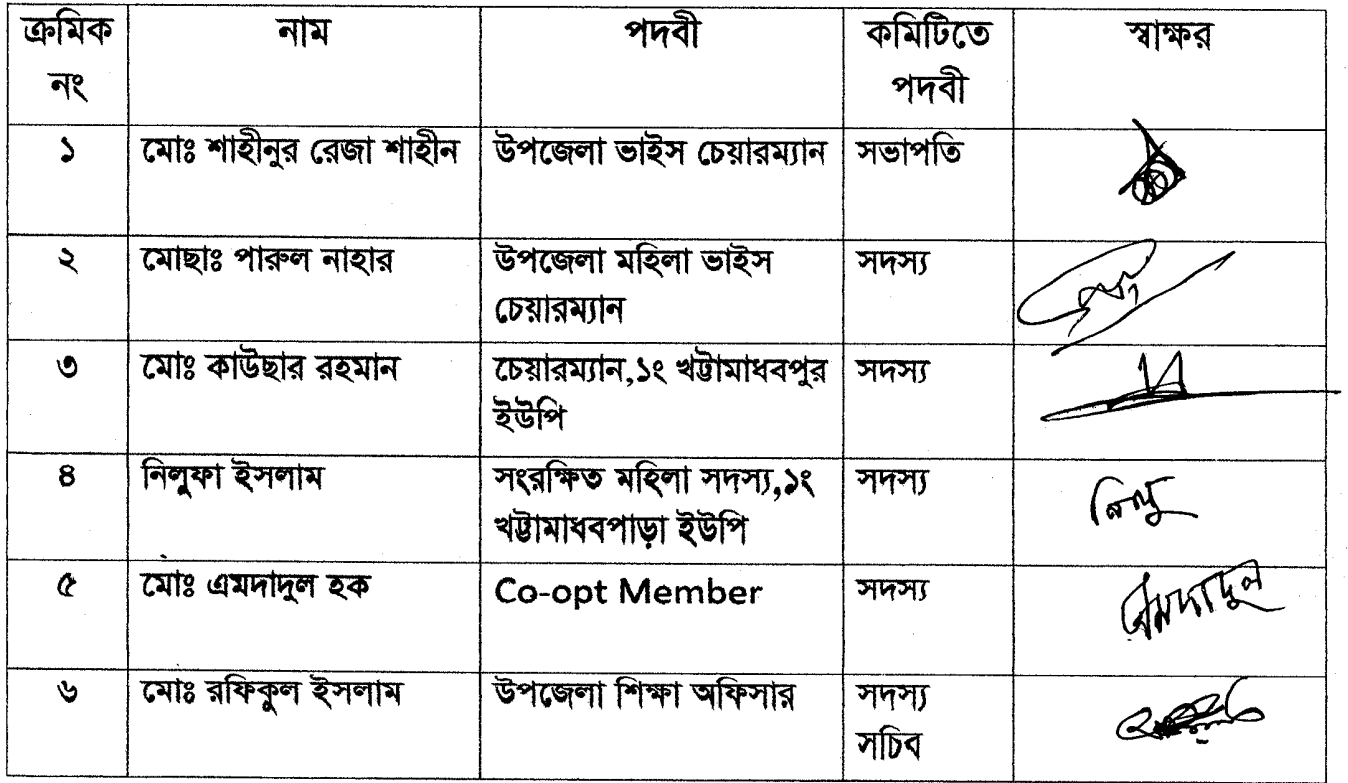 ক্রমিক নং নাম পদবী কমিটিতে পদবী স্বাক্ষর
১ মোঃ শাহীনুর রেজা শাহীন উপজেলা ভাইস চেয়ারম্যান সভাপতি
২ মোছাঃ পারুল নাহার উপজেলা মহিলা ভাইস চেয়ারম্যান সদস্য
৩ মোঃ কাউছার রহমান চেয়ারম্যান,১ং খট্টামাধবপুর ইউপি সদস্য
৪ নিলুফা ইসলাম সংরক্ষিত মহিলা সদস্য,১ং খট্টামাধবপাড়া ইউপি সদস্য নিলু
৫ মোঃ এমদাদুল হক Co-opt Member সদস্য এমদাদুল
৬ মোঃ রফিকুল ইসলাম উপজেলা শিক্ষা অফিসার সদস্য সচিব